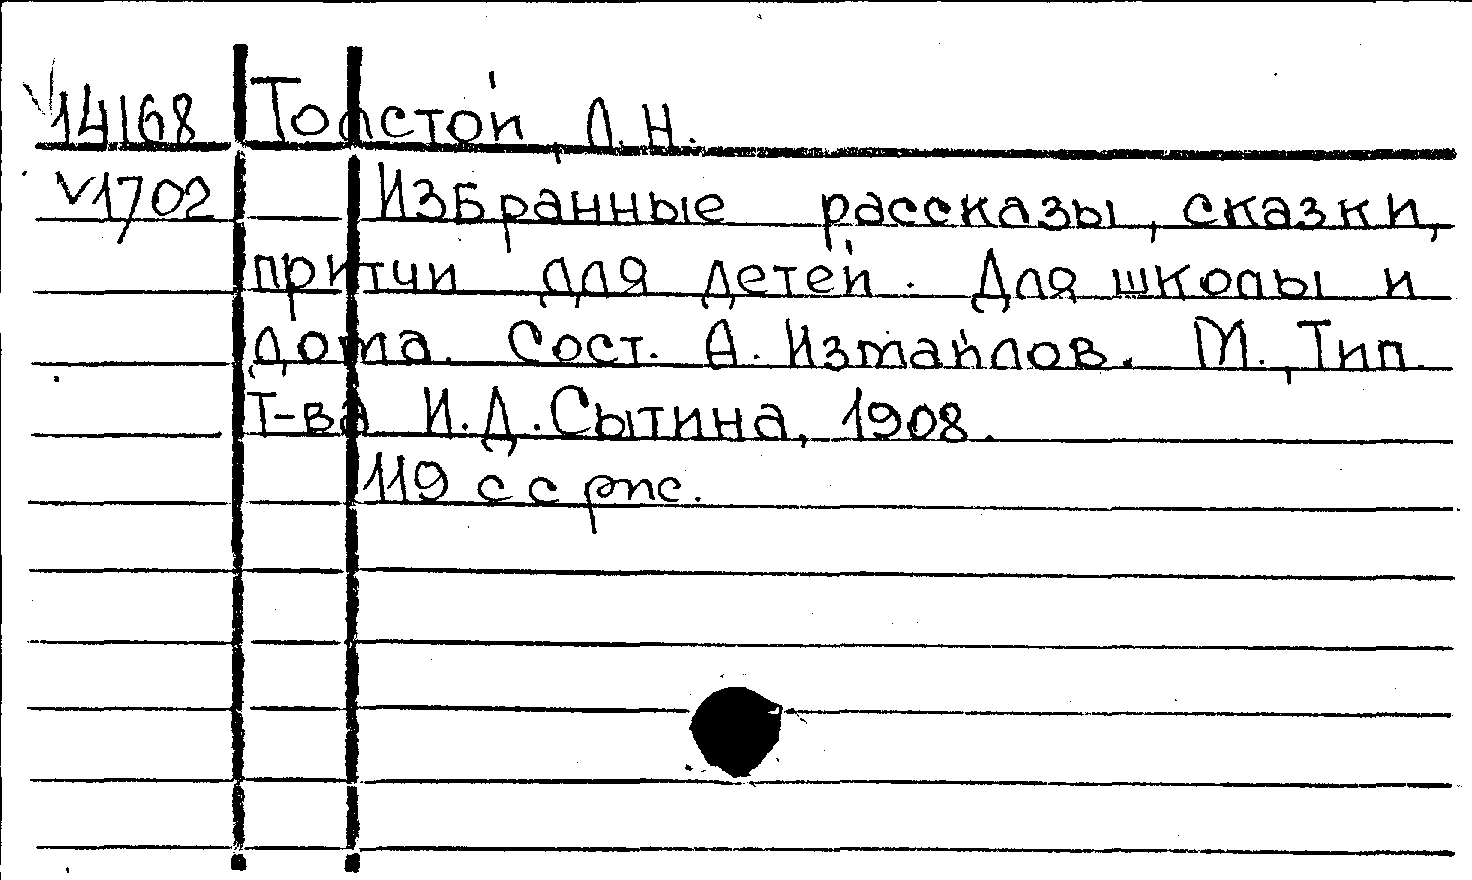 V14168 Толстой, Л.Н.
V1702 Избранные рассказы, сказки,
притчи для детей. Для школы и
дома. Сост. А. Измайлов. М., Тип.
Т-ва И.Д. Сытина, 1908.
119 с с рис.